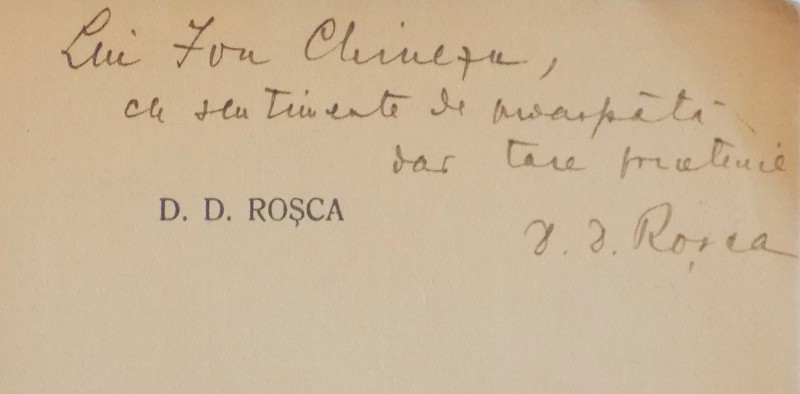 Lui Ion Chinezu,
cu sentimente de proaspătă
dar tare prietenie
D. D. ROȘCA
D. D. Roșca